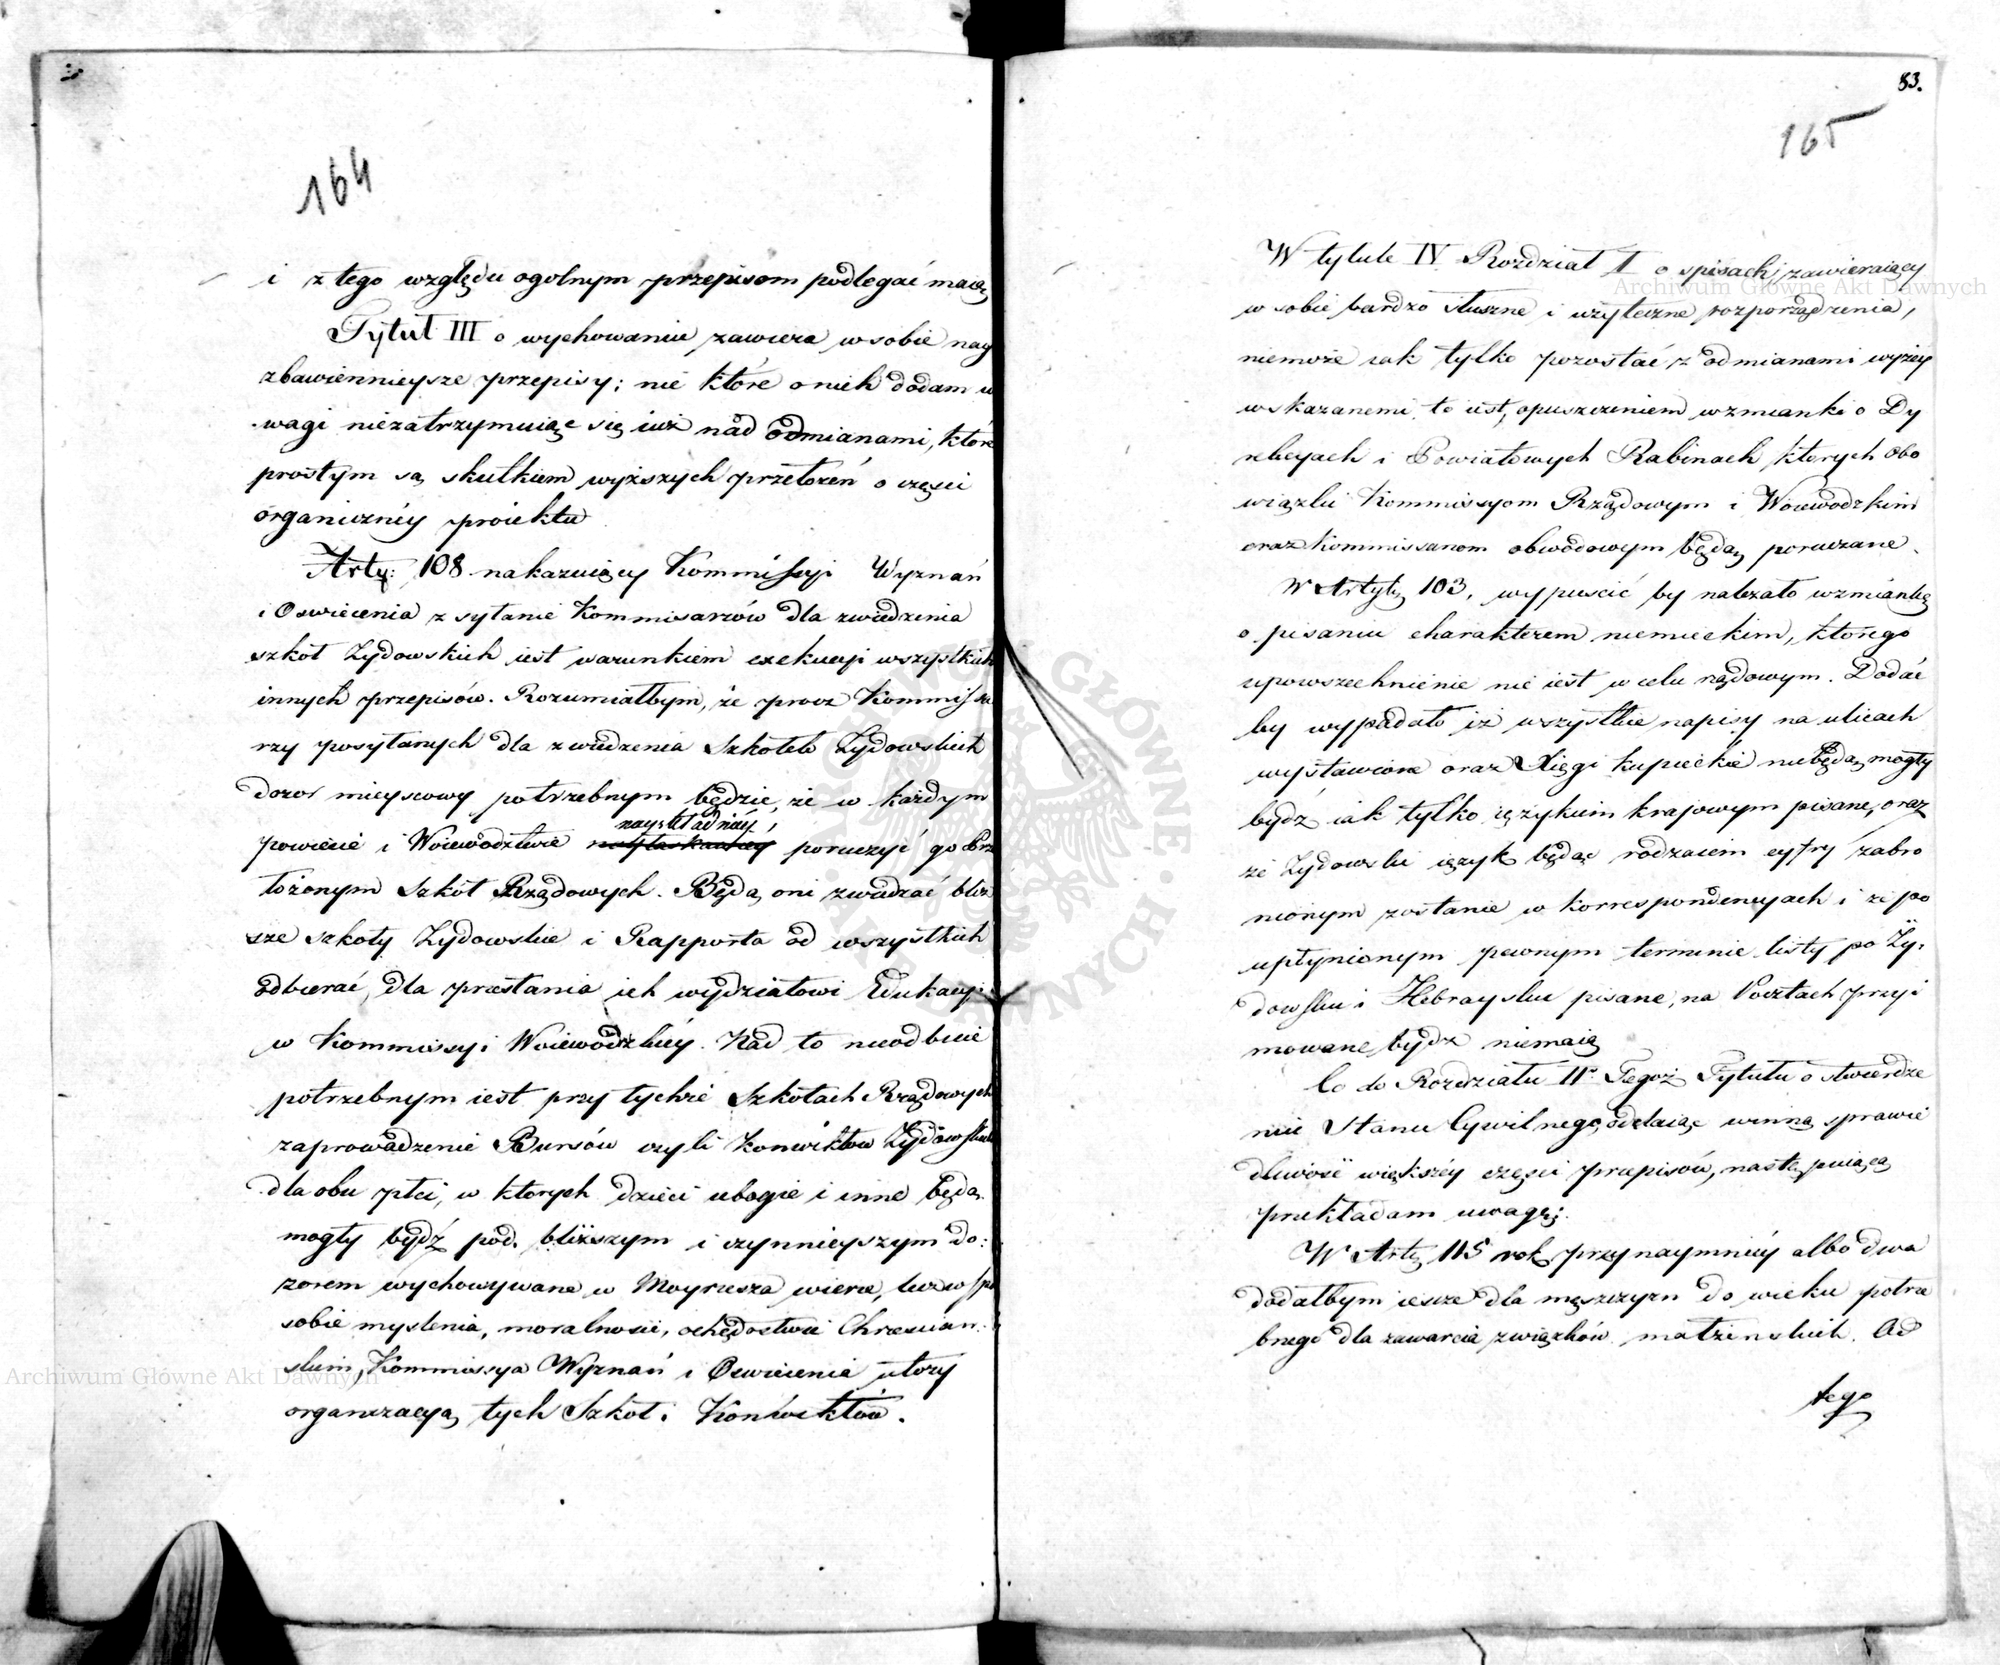 164
i z tego względu ogolnym przepisom podlegać maią
Tytuł III o wychowaniu zawiera w sobie nay
zbawiennieysze przepisy; nie które o nich dodam u
wagi niezatrzymuiąc się iuż nad odmianami, które
prostym są skutkiem wyższych przełożeń o części
organiczney proiektu
Arty: 108 nakazuiący Kommissyi Wyznań
i Oswiecenia zsyłanie Kommisarzów dla zwiedzenia
szkół Żydowskich iest warunkiem exekucyi wszystkich
innych przepisów. Rozumiałbym, że procz Kommissa
rzy posyłanych dla zwiedzenia Szkółek Żydowskich
dozor mieyscowy potrzebnym będzie, że w każdym
powiecie i Woiewodztwie
nayskładniéy
poruczyć go Prze
łożonym Szkół Rządowych. Będą oni zwiedzać bliż
sze szkoły Żydowskie i Rapporta od wszystkich
odbierać, dla przesłania ich wydziałowi Edukacyi
w Kommissyi Woiewodzkiéy. Nad to nieodbicie
potrzebnym iest przy tychże Szkołach Rządowych
zaprowadzenie Bursów czyli Konwiktow Żydowskich
dla obu płci, w ktorych dzieci ubogie i inne będą
mogły bydź pod bliższym i czynnieyszym do:
zorem wychowywane w Moyżesza wierze, lecz w spo
sobie myslenia, moralnosci, ochędostwie Chrzescian:
skim, Kommissya Wyznań i Oswiecenia ułoży
organizacyą tych Szkół i Konwiktów.
83.
165
W tytule IV Rozdział I o spisach zawieraiący
w sobie bardzo słuszne i użyteczne rozporządzenia,
niemoże iak tylko pozostać z odmianami wyżey
wskazanemi, to iest, opuszczeniem wzmianki o Dy
rekcyach i Powiatowych Rabinach, ktorych obo
wiązki Kommissyom Rządowym i Woiewodzkim
oraz Kommissarzom obwodowym będą poruczane.
W Artyly 103, wypuscić by należało wzmiankę
o pisaniu charakterem niemieckim, którego
upowszechnienie nie iest w celu rządowym. Dodać
by wypadało iż wszystkie napisy na ulicach
wystawione oraz Xięgi kupieckie niebędą mogły
bydź iak tylko ięzykiem krajowym pisane, oraz
że Żydowski ięzyk będąc rodzaiem cyfry zabro
nionym zostanie w korrespondencyach i że po
upłynionym pewnym terminie listy po Ży,
dowsku i Hebraysku pisane, na Pocztach przyi
mowane bydź niemaią
Co do Rozdziału II° Tegoż Tytułu o stwierdze
niu Stanu Cywilnego, oddaiąc winną sprawie
dliwość większéy części przepisów, następuiącą
przekładam uwagę;
W Arty 115 rok przynaymniéy albo dwa
dodałbym ieszcze dla męszczyzn do wieku potrze
bnego dla zawarcia związków małżenskich. Od
tego